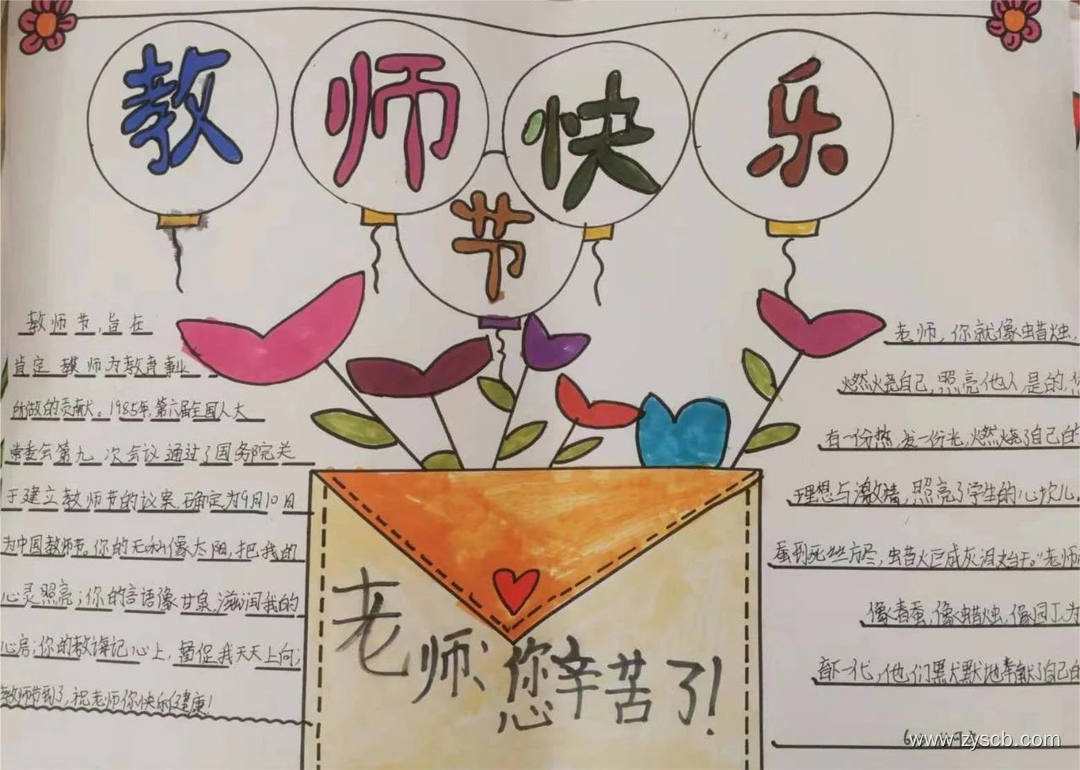 教师快乐
节
教师节,旨在
肯定教师为教育事业
所做的贡献。1985年,第六届全国人大
常委会第九次会议通过了国务院关
于建立教师节的议案,确定为9月10日
为中国教师节。你的无私像太阳,把我的
心灵照亮;你的言语像甘泉,滋润我的
心房;你的教诲记心上,督促我天天上向;
教师节到了,祝老师你快乐健康!
老师,你就像蜡烛,
燃烧自己,照亮他人是的,
有一份热,发一份光,燃烧了自己的
理想与激情,照亮了学生的心坎儿,
蚕到死丝方尽,蜡炬成灰泪始干。"老师
像春蚕,像蜡烛,像园工,为
育下一代,他们默默地奉献了自己的
老师:您辛苦了!
www.zyscb.com